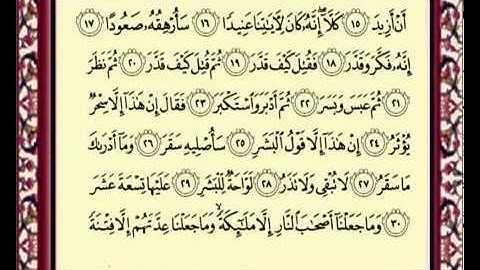 أَنْ أَزِيدَ ١٥ كَلَّا إِنَّهُ كَانَ لِآيَاتِنَا عَنِيدًا ١٦ سَأُرْهِقُهُ صَعُودًا ١٧
إِنَّهُ فَكَّرَ وَقَدَّرَ ١٨ فَقُتِلَ كَيْفَ قَدَّرَ ١٩ ثُمَّ قُتِلَ كَيْفَ قَدَّرَ ٢٠ ثُمَّ نَظَرَ
٢١ ثُمَّ عَبَسَ وَبَسَرَ ٢٢ ثُمَّ أَدْبَرَ وَاسْتَكْبَرَ ٢٣ فَقَالَ إِنْ هَٰذَا إِلَّا سِحْرٌ
يُؤْثَرُ ٢٤ إِنْ هَٰذَا إِلَّا قَوْلُ الْبَشَرِ ٢٥ سَأُصْلِيهِ سَقَرَ ٢٦ وَمَا أَدْرَىٰكَ
مَا سَقَرُ ٢٧ لَا تُبْقِي وَلَا تَذَرُ ٢٨ لَوَّاحَةٌ لِّلْبَشَرِ ٢٩ عَلَيْهَا تِسْعَةَ عَشَرَ
٣٠ وَمَا جَعَلْنَا أَصْحَٰبَ النَّارِ إِلَّا مَلَٰئِكَةً وَمَا جَعَلْنَا عِدَّتَهُمْ إِلَّا فِتْنَةً